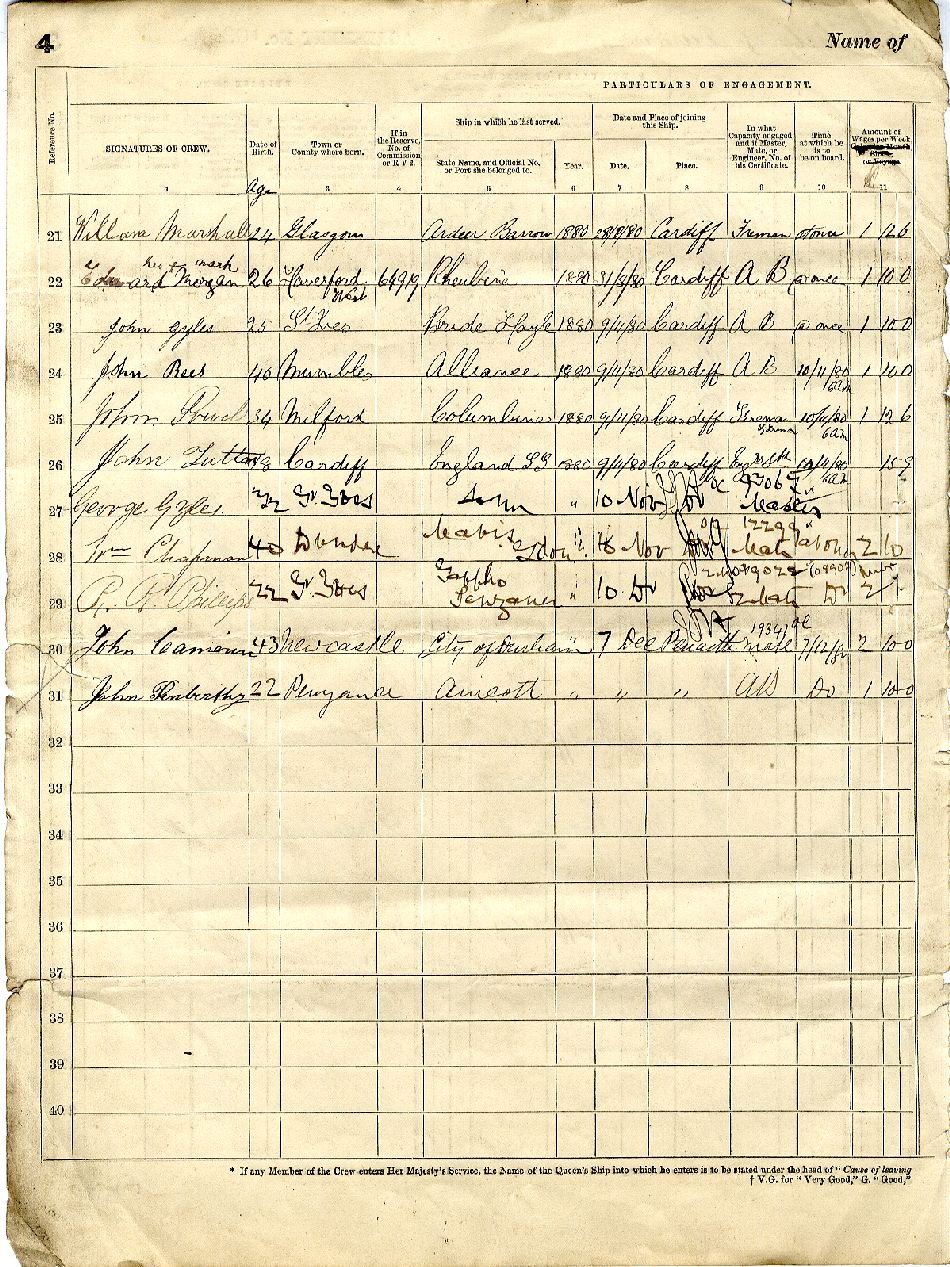 4
Name of
PARTICULARS OF ENGAGEMENT.
Reference No.
SIGNATURES OF CREW.
Date of Birth.
Town or County where born.
If in the Reserve, No. of Commission or R V 2.
Ship in which he last served.
State Name, and Official No. or Port she belonged to.
Year.
Date and Place of joining this Ship.
Date.
Place.
In what Capacity engaged and if Master, Mate, or Engineer, No. of his Certificate.
Time at which he is to be on board.
Amount of Wages per Week
Age
1 3 4 5 6 7 8 9 10 11
21 William Marshall 24 Glasgow Ardeer Barrow 1880 Cardiff Fireman at once 1 12 6
his x mark
22 Edward Morgan 26 Haverford West Rhoubina 1880 31/3/80 Cardiff A B at once 1 10 0
23 John Gyles 25 St Ives Bride Hayle 1880 9/4/80 Cardiff A B at once 1 10 0
24 John Rees 40 Mumbles Alliance 1880 9/4/80 Cardiff A B 10/4/80 6 am 1 10 0
25 John Powell 34 Milford Columbine 1880 9/4/80 Cardiff Fireman 10/4/80 6 am 1 12 6
26 John Cardiff England SS 1880 9/4/80 Cardiff 15 9
27 George Gyles 22 St. Ives " 10 Nov Master
28 Wm Chapman 40 Dundee Mabis " 18 Nov Mate at once 2 10
29 R. R. Philips 22 St. Ives Sappho Penzance " 10 Do 2 Mate Do 2
30 John Cameron 43 Newcastle City of Durham " 7 Dec Penarth Mate 7/12/80 2 10 0
31 John Penberthy 22 Penzance " " " AB Do 1 10 0
32
33
34
35
36
37
38
39
40
* If any Member of the Crew enters Her Majesty's Service, the Name of the Queen's Ship into which he enters is to be stated under the head of "Cause of leaving
† V.G. for "Very Good," G. "Good,"